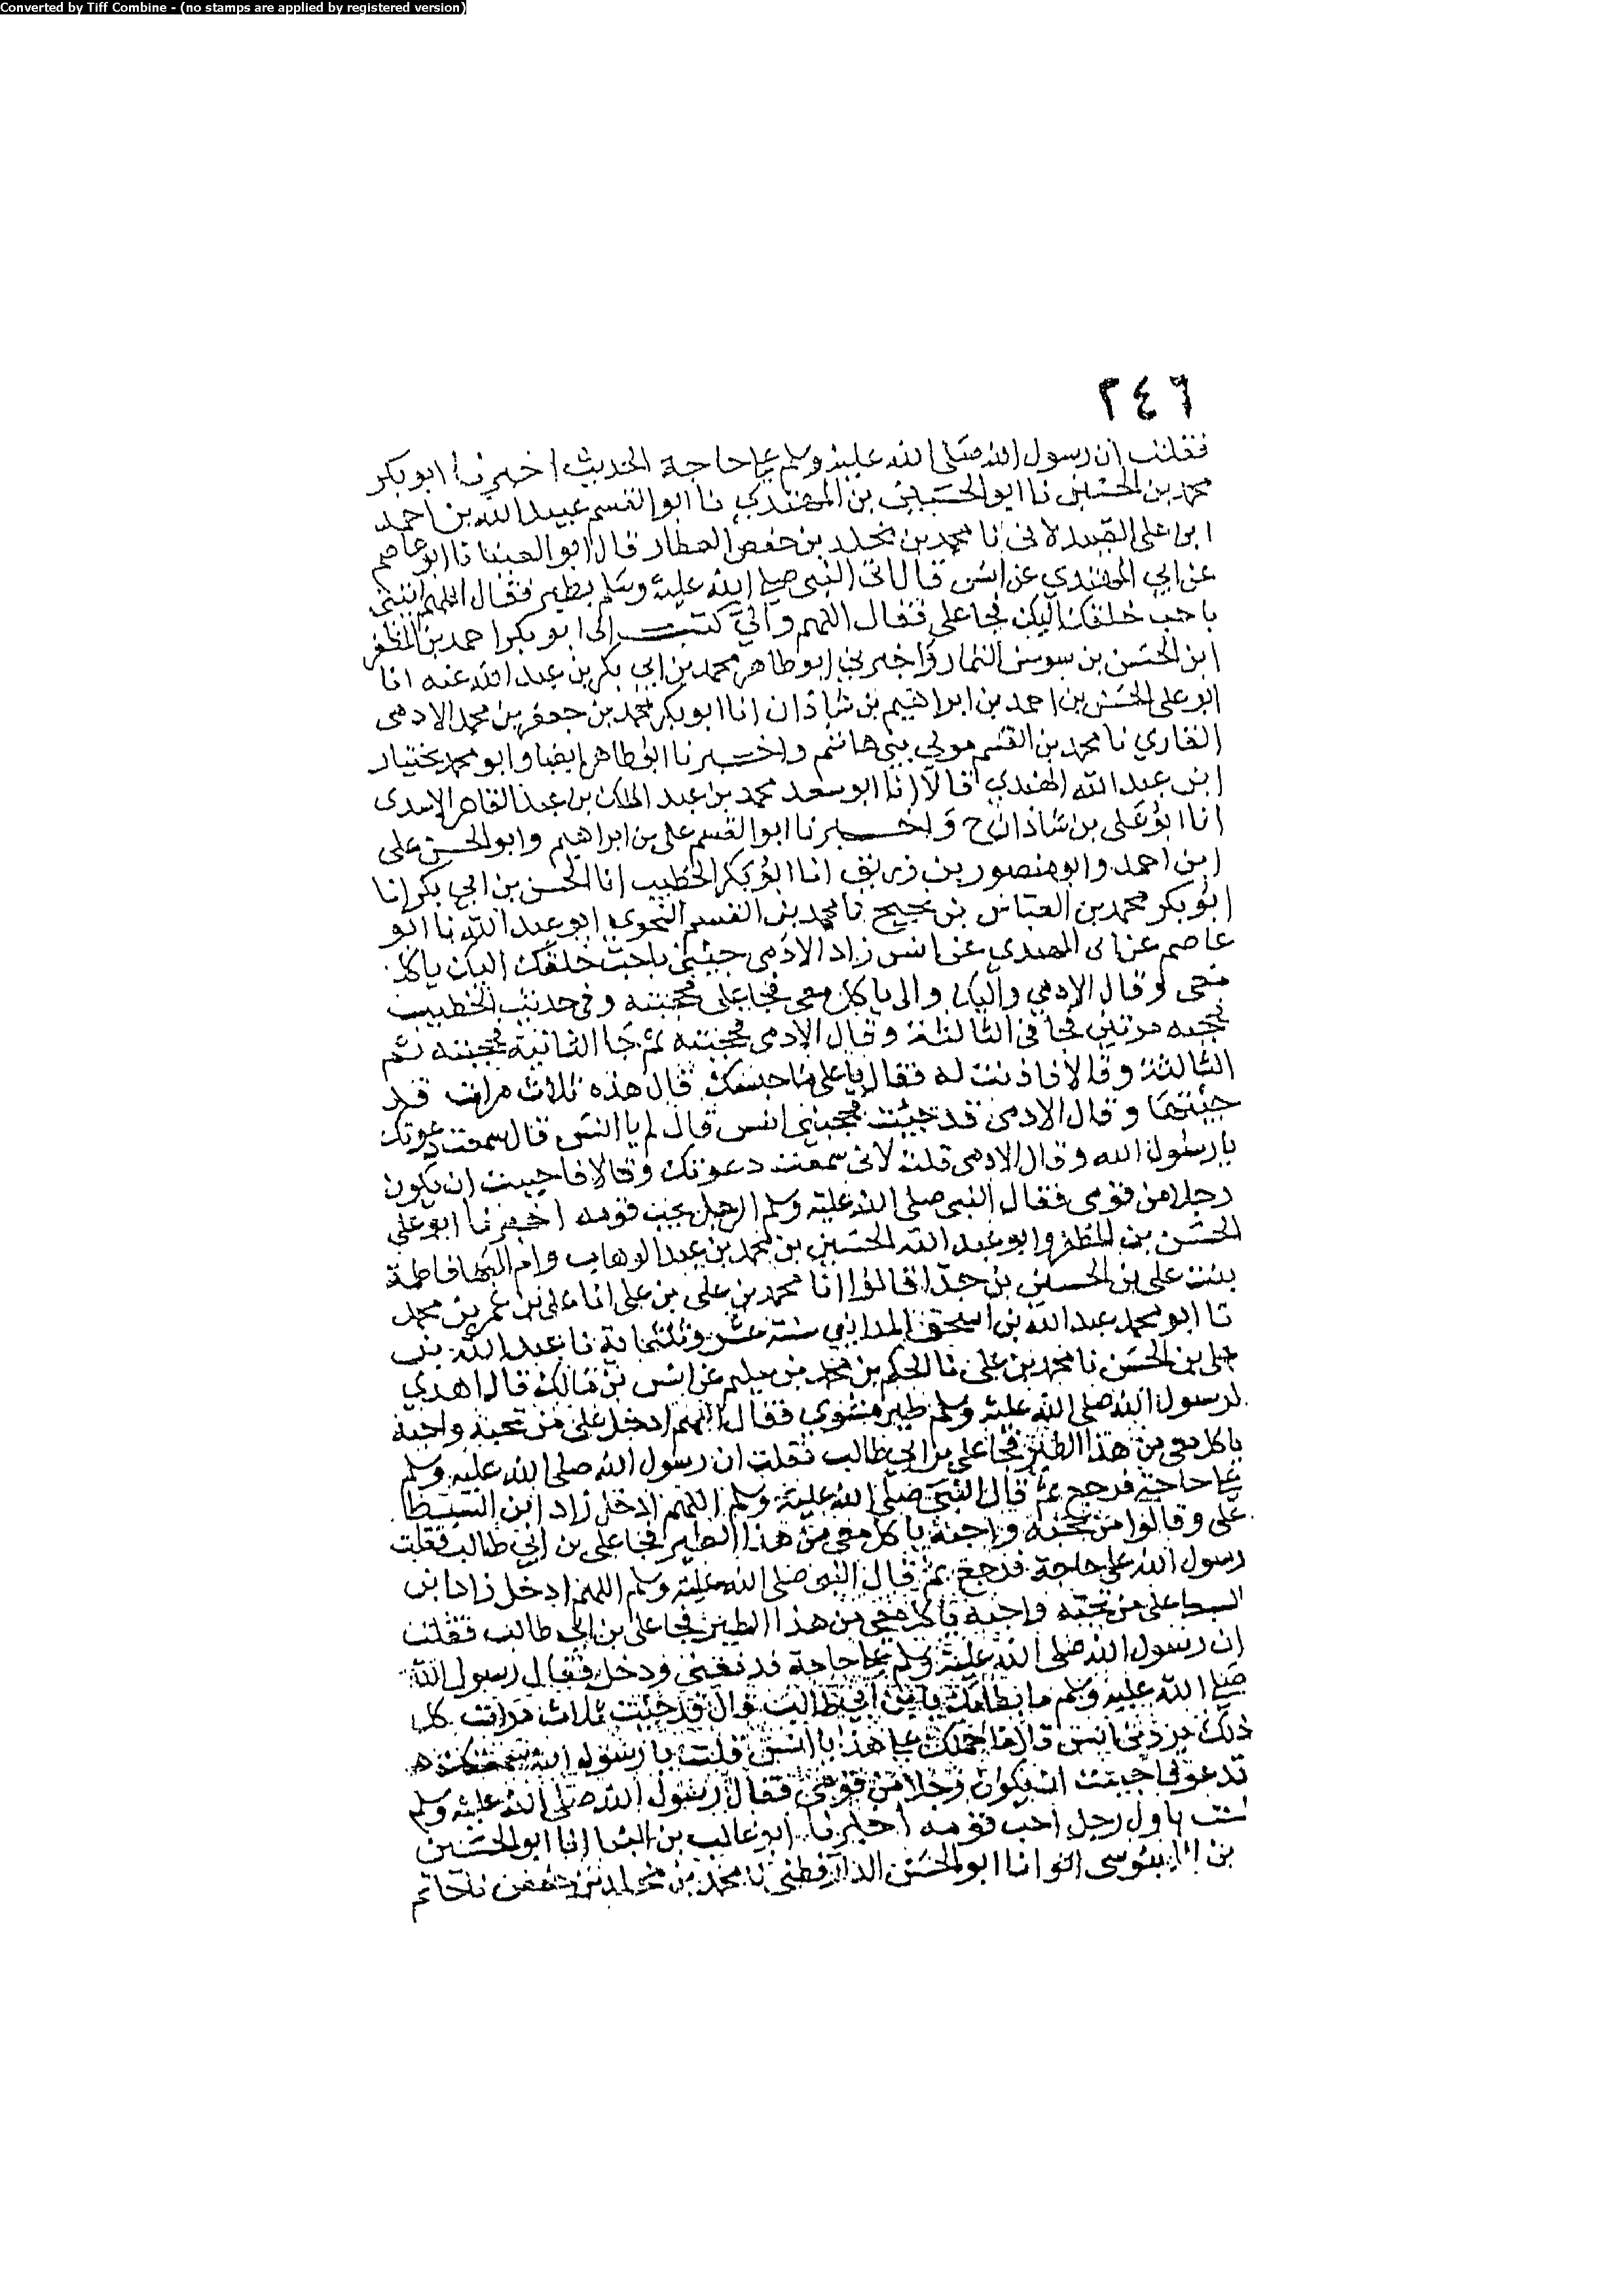 Converted by Tiff Combine - (no stamps are applied by registered version)
٢٤٦
فقلت ان رسول الله صلى الله عليه وسلم على حاجة الحديث اخبرنا ابو بكر
محمد بن الحسين نا ابو الحسين بن المهتدي نا ابو القسم عبيد الله بن احمد
ابن على الصيدلانى نا محمد بن مخلد بن حفص العطار قال ابو العينا نا ابو عاصم
عن ابي الهندي عن انس قال اتى النبى صلى الله عليه وسلم بطير فقال اللهم ائتنى
باحب خلقك اليك فجا على فقال اللهم والىّ كتب الى ابو بكر احمد بن المظفر
ابن الحسن بن سوسن التمار واخبرني ابو طاهر محمد بن ابي بكر بن عبد الله عنه انا
ابو على الحسن بن احمد بن ابراهيم بن شاذان انا ابو بكر محمد بن جعفر بن محمد الادمى
القاري نا محمد بن القسم مولى بني هاشم واخبرنا ابو طاهر ايضا وابو محمد بختيار
ابن عبد الله الهندي قالا انا ابو سعد محمد بن عبد الملك بن عبد القاهر الاسدى
انا ابو على بن شاذان ح واخبرنا ابو القسم على بن ابراهيم وابو الحسن على
ابن احمد وابو منصور بن زريق انا ابو بكر الخطيب انا الحسن بن ابي بكر انا
ابو بكر محمد بن العباس بن نجيح نا محمد بن القسم النحوي ابو عبد الله نا ابو
عاصم عن ابى الهندى عن انس زاد الادمى جيئنى باحب خلقك اليك ياكل
معى وقال الادمي واليك والى ياكل معى فجا على فحجبته وفى حديث الخطيب
فحجبه مرتين فجا فى الثالثة وقال الادمى فحجبته ثم جا الثانية فحجبته ثم
الثالثة وقالا فاذنت له فقال يا على ما حبسك قال هذه ثلاث مرات قد
جيئتها وقال الادمى قد جيئت فحجبني انس قال لم يا انس قال سمعت دعوتك
يا رسول الله وقال الادمى قلت لانى سمعت دعوتك وقالا فاحببت ان يكون
رجلا من قومى فقال النبى صلى الله عليه وسلم الرجل يحب قومه اخبرنا ابو على
الحسن بن المظفر وابو عبد الله الحسين بن محمد بن عبد الوهاب وام البها فاطمة
بنت على بن الحسين بن جدا قالوا انا محمد بن على بن على انا على بن عمر بن محمد
نا ابو محمد عبد الله بن اسحق المدايني سنة عشر وثلثماية نا عبد الله بن
على بن الحسن نا محمد بن على نا الحكم بن محمد بن سليم عن انس بن مالك قال اهدي
لرسول الله صلى الله عليه وسلم طير مشوي فقال اللهم ادخل على من تحبه واحبه
ياكل معى من هذا الطير فجا على بن ابي طالب فقلت ان رسول الله صلى الله عليه وسلم
على حاجة فرجع ثم قال النبي صلى الله عليه وسلم اللهم ادخل زاد ابن السبط
على وقالوا من تحبه واحبه ياكل معى من هذا الطير فجا على بن ابي طالب فقلت
رسول الله على حاجة فرجع ثم قال النبى صلى الله عليه وسلم اللهم ادخل زاد ابن
السبط على من تحبه واحبه ياكل معى من هذا الطير فجا على بن ابي طالب فقلت
ان رسول الله صلى الله عليه وسلم على حاجة فدفعنى ودخل فقال رسول الله
صلى الله عليه وسلم ما بطا بك يا بن ابي طالب قال قد جئت ثلاث مرات كل
ذلك يردنى انس قال ما حملك على هذا يا انس قلت يا رسول الله سمعتك
تدعو فاحببت ان يكون رجلا من قومى فقال رسول الله صلى الله عليه وسلم
لست باول رجل احب قومه اخبرنا ابو غالب بن البنا انا ابو الحسين
بن الابنوسى انا ابو الحسن الدارقطنى نا محمد بن مخلد بن حفص نا حاتم